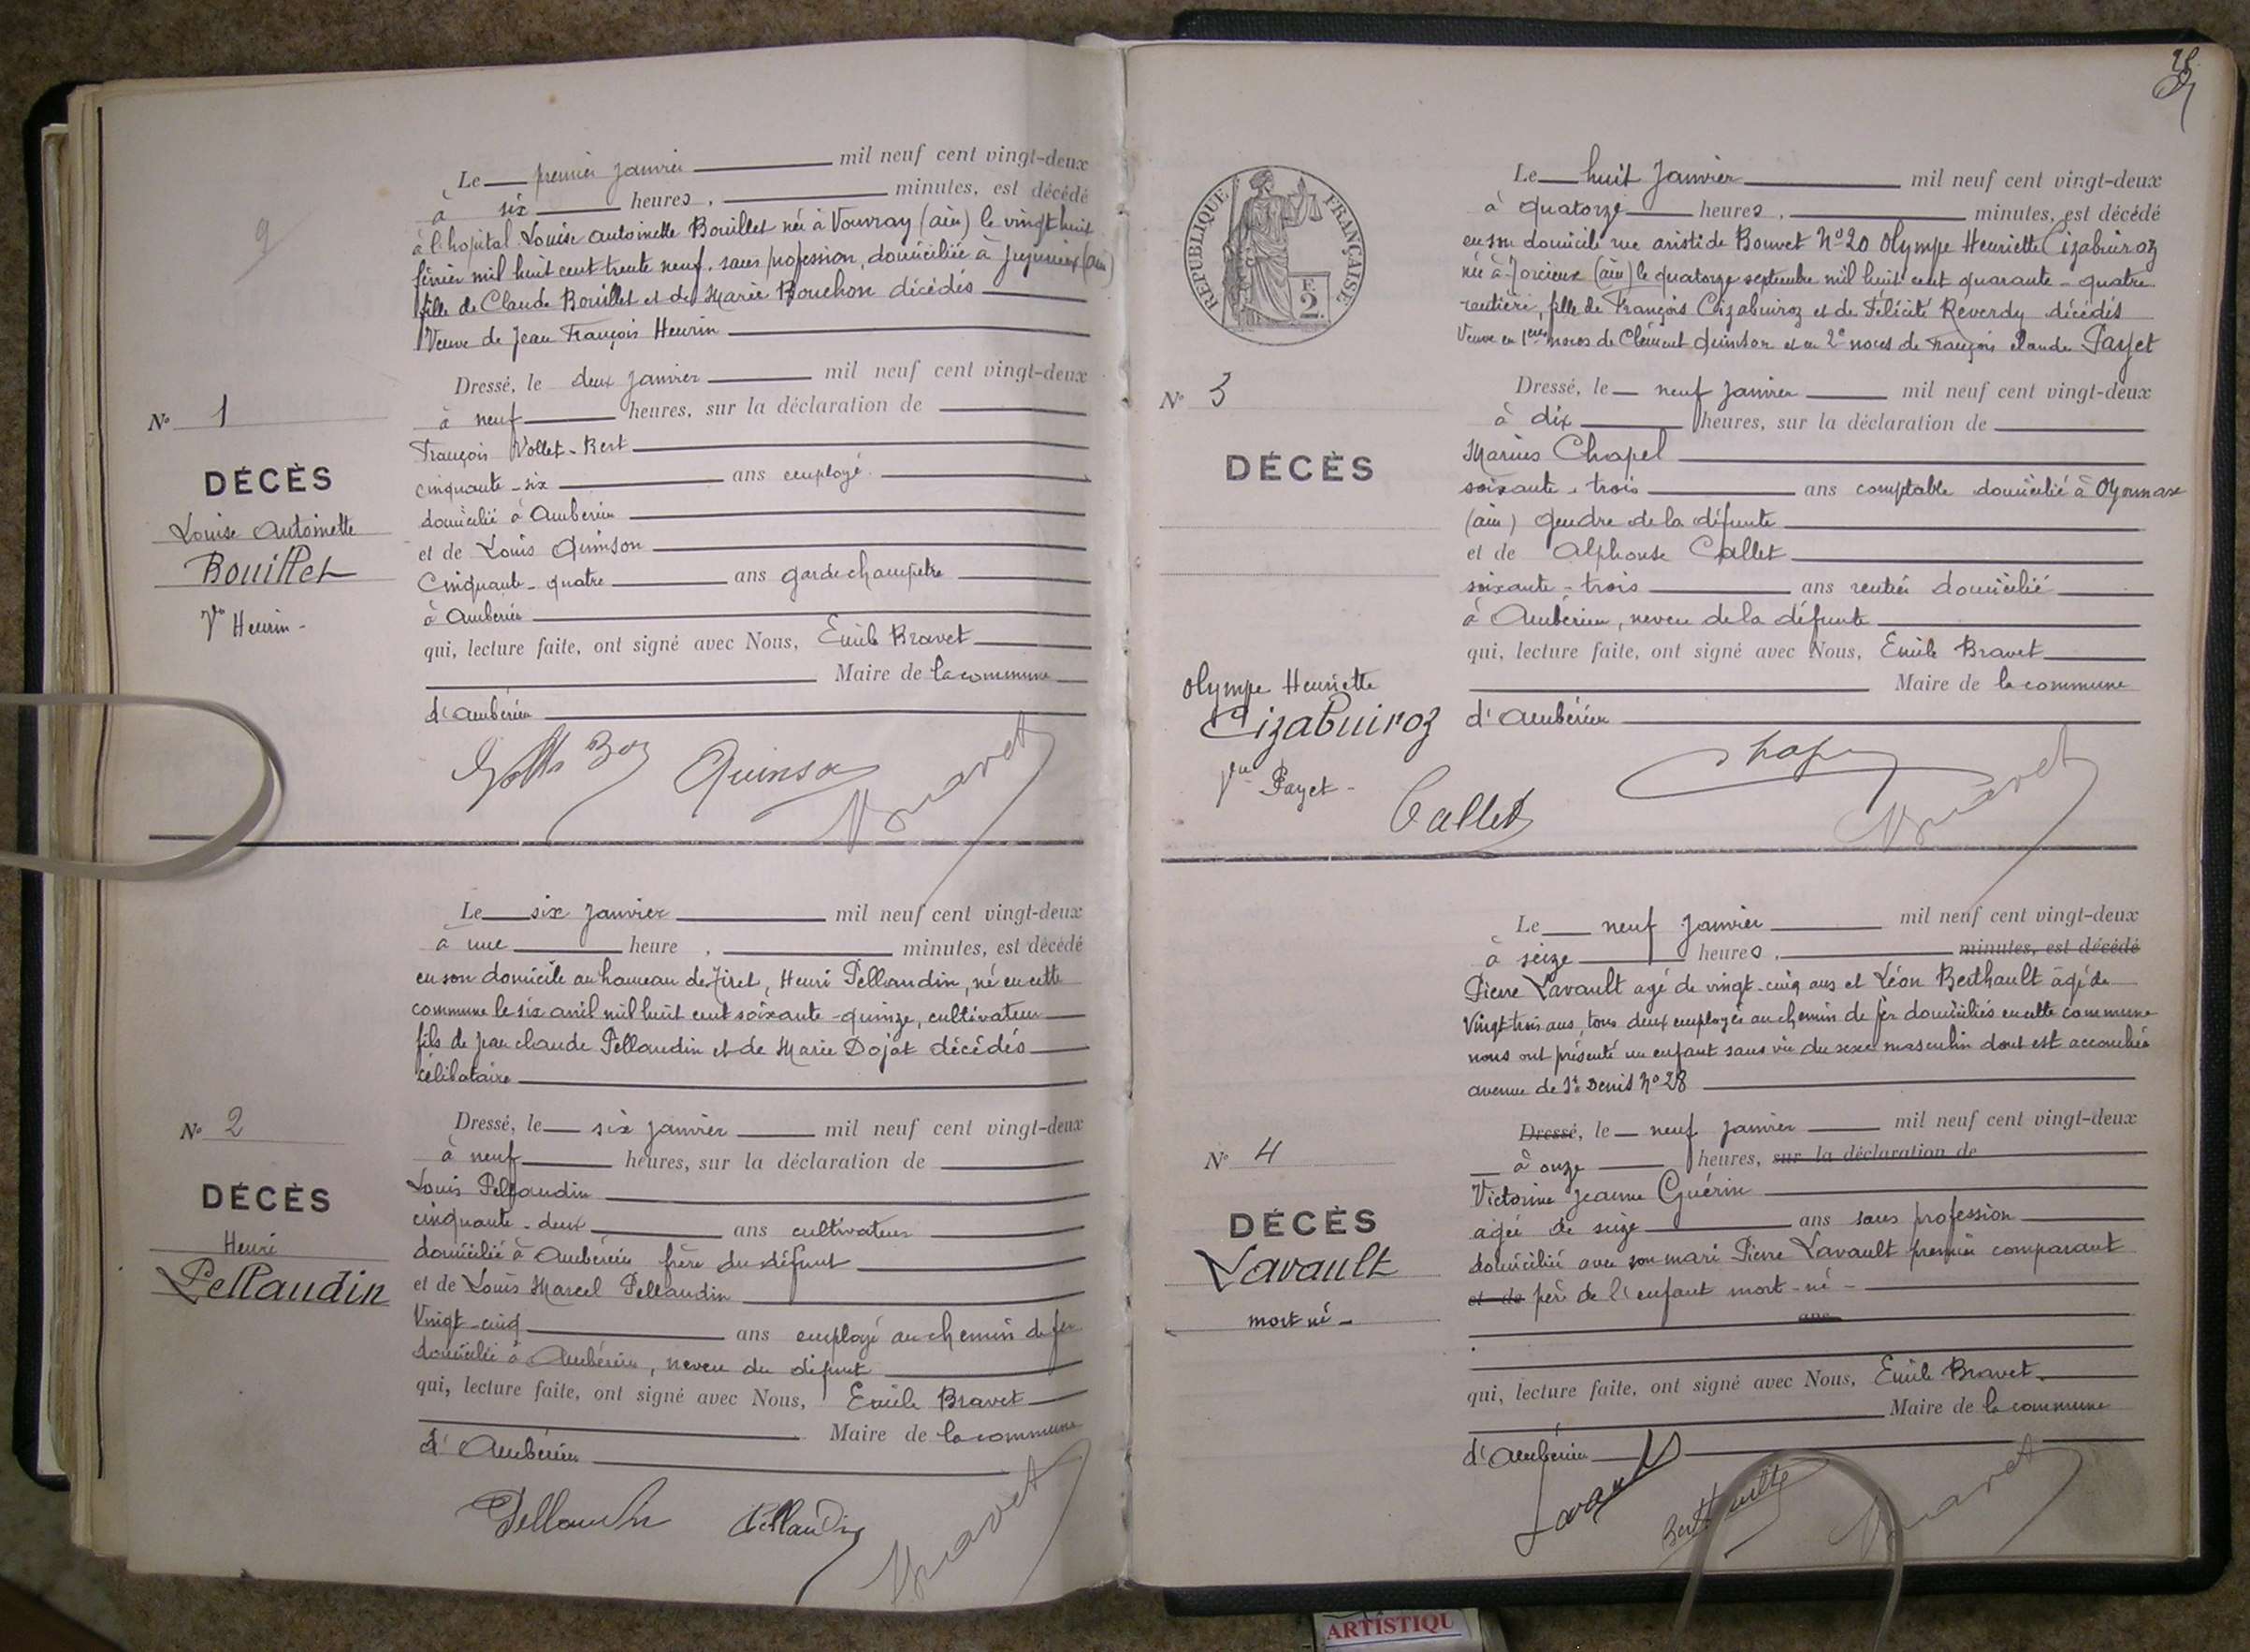 Le premier janvier mil neuf cent vingt-deux
à six heures, minutes, est décédé
à l'hopital Louise Antoinette Bouillet née à Vouvray (ain) le vingt huit
février mil huit cent trente neuf, sans profession, domiciliée à Jujurieux (ain)
fille de Claude Bouillet et de Marie Bouchon décédés
Veuve de Jean François Heurin
Dressé, le deux janvier mil neuf cent vingt-deux
à neuf heures, sur la déclaration de
François Vollet-Bert
cinquante-six ans employé
domicilié à Ambérieu
et de Louis Quinson
Cinquante-quatre ans garde champêtre
à Ambérieu
qui, lecture faite, ont signé avec Nous, Emile Bravet
Maire de la commune
d'Ambérieu
Quinson Bravet
No 1
DÉCÈS
Louise Antoinette
Bouillet
Vve Heurin -
Le six janvier mil neuf cent vingt-deux
à une heure, minutes, est décédé
en son domicile au hameau de Tiret, Henri Pellaudin, né en cette
commune le six avril mil huit cent soixante-quinze, cultivateur
fils de Jean Claude Pellaudin et de Marie Dojat décédés
célibataire
Dressé, le six janvier mil neuf cent vingt-deux
à neuf heures, sur la déclaration de
Louis Pellaudin
cinquante-deux ans cultivateur
domicilié à Ambérieu frère du défunt
et de Louis Marcel Pellaudin
Vingt-cinq ans employé au chemin de fer
domicilié à Ambérieu, neveu du défunt
qui, lecture faite, ont signé avec Nous, Emile Bravet
Maire de la commune
d'Ambérieu
Pellaudin Pellaudin Bravet
No 2
DÉCÈS
Henri
Pellaudin
RÉPUBLIQUE FRANÇAISE
F.
2.
Le huit Janvier mil neuf cent vingt-deux
à quatorze heures, minutes, est décédé
en son domicile rue aristide Bouvet No 20 Olympe Henriette Cizabuiroz
née à Torcieux (ain) le quatorze septembre mil huit cent quarante-quatre
rentière, fille de François Cizabuiroz et de Félicité Reverdy décédés
Veuve en 1eres noces de Clément Quinson et en 2e noces de François Claude Payet
Dressé, le neuf janvier mil neuf cent vingt-deux
à dix heures, sur la déclaration de
Marius Chapel
soixante-trois ans comptable domicilié à Oyonnax
(ain) gendre de la défunte
et de Alphonse Callet
soixante-trois ans rentier domicilié
à Ambérieu, neveu de la défunte
qui, lecture faite, ont signé avec Nous, Emile Bravet
Maire de la commune
d'Ambérieu
Callet Chapel Bravet
No 3
DÉCÈS
Olympe Henriette
Cizabuiroz
Vve Payet -
Le neuf janvier mil neuf cent vingt-deux
à seize heures, minutes, est décédé
Pierre Lavault agé de vingt-cinq ans et Léon Berthault âgé de
Vingt trois ans, tous deux employés au chemin de fer domiciliés en cette commune
nous ont présenté un enfant sans vie du sexe masculin dont est accouchée
avenue de St Denis No 28
Dressé, le neuf janvier mil neuf cent vingt-deux
à onze heures, sur la déclaration de
Victorine Jeanne Guérin
agée de seize ans sans profession
domiciliée avec son mari Pierre Lavault premier comparant
et de père de l'enfant mort-né -
ans
qui, lecture faite, ont signé avec Nous, Emile Bravet.
Maire de la commune
d'Ambérieu
Lavault Berthault Bravet
No 4
DÉCÈS
Lavault
mort né -
ARTISTIQU